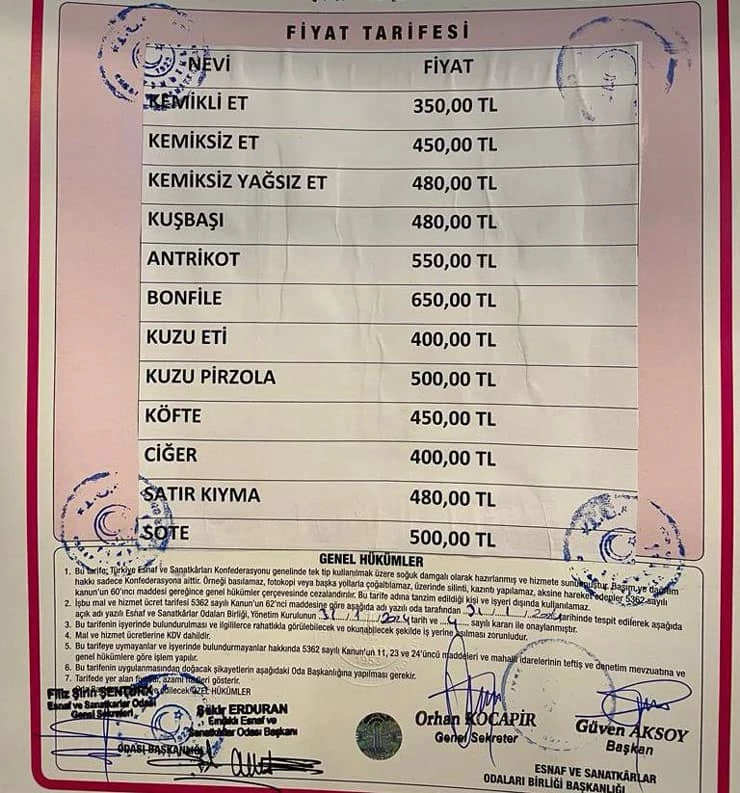 FİYAT TARİFESİ
NEVİ FİYAT
KEMİKLİ ET 350,00 TL
KEMİKSİZ ET 450,00 TL
KEMİKSİZ YAĞSIZ ET 480,00 TL
KUŞBAŞI 480,00 TL
ANTRİKOT 550,00 TL
BONFİLE 650,00 TL
KUZU ETİ 400,00 TL
KUZU PİRZOLA 500,00 TL
KÖFTE 450,00 TL
CİĞER 400,00 TL
SATIR KIYMA 480,00 TL
SOTE 500,00 TL
GENEL HÜKÜMLER
1. Bu tarife; Türkiye Esnaf ve Sanatkârları Konfederasyonu genelinde tek tip kullanılmak üzere soğuk damgalı olarak hazırlanmış ve hizmete sunulmuştur. Basım ve dağıtım
hakkı sadece Konfederasyona aittir. Örneği basılamaz, fotokopi veya başka yollarla çoğaltılamaz, üzerinde silinti, kazıntı yapılamaz, aksine hareket edenler 5362 sayılı
kanun'un 60'ıncı maddesi gereğince genel hükümler çerçevesinde cezalandırılır. Bu tarife adına tanzim edildiği kişi ve işyeri dışında kullanılamaz.
2. İşbu mal ve hizmet ücret tarifesi 5362 sayılı Kanun'un 62'nci maddesine göre aşağıda adı yazılı oda tarafından 31/1/2024 tarihinde tespit edilerek aşağıda
açık adı yazılı Esnaf ve Sanatkârlar Odaları Birliği, Yönetim Kurulunun 31/1/2024 tarih ve 4 sayılı kararı ile onaylanmıştır.
3. Bu tarifenin işyerinde bulundurulması ve ilgililerce rahatlıkla görülebilecek ve okunabilecek şekilde iş yerine asılması zorunludur.
4. Mal ve hizmet ücretlerine KDV dahildir.
5. Bu tarifeye uymayanlar ve işyerinde bulundurmayanlar hakkında 5362 sayılı Kanun'un 11, 23 ve 24'üncü maddeleri ve mahalli idarelerinin teftiş ve denetim mevzuatına ve
genel hükümlere göre işlem yapılır.
6. Bu tarifenin uygulanmasından doğacak şikayetlerin aşağıdaki Oda Başkanlığına yapılması gerekir.
7. Tarifede yer alan azami hadleri gösterir.
ÖZEL HÜKÜMLER
Filiz Şirin ŞENTÜRK
Esnaf ve Sanatkarlar Odası
Genel Sekreteri
Şükür ERDURAN
Emekli Esnaf ve
Sanatkarlar Odası Başkanı
ODASI BAŞKANLIĞI
1953
Orhan KOCAPIR
Genel Sekreter
Güven AKSOY
Başkan
ESNAF VE SANATKÂRLAR
ODALARI BİRLİĞİ BAŞKANLIĞI